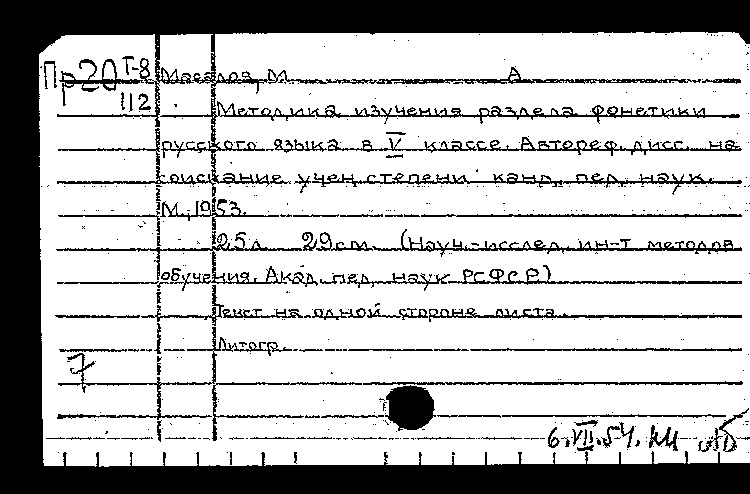 Пр20 Т-8 М А
112 Методика изучения раздела фонетики
русского языка в V классе. Автореф. дисс. на
соискание учен. степени канд. пед. наук.
М., 1953.
25 л. 29 см. (Науч.-исслед. ин-т методов
обучения. Акад. пед. наук РСФСР)
Текст на одной стороне листа.
Литогр.
7
6.VII.54.